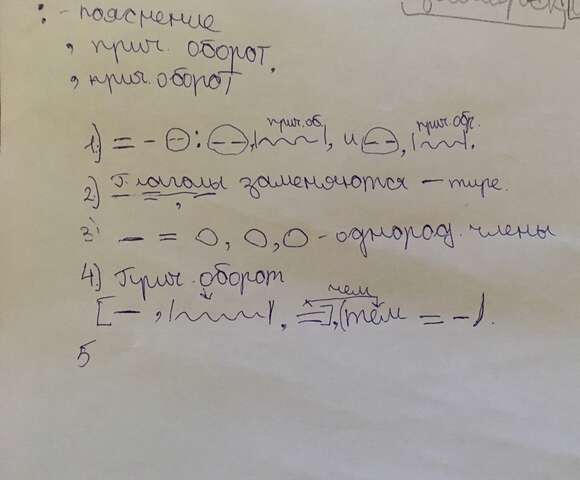 : - пояснение
, прич. оборот,
, прич. оборот
прич. об. прич. обр.
1.) = - ⊖ : (- -), |~~~|, и (- -), |~~~|.
2.) Глаголы заменяются – тире.
3) — = O, O, O - однород. члены
4.) Прич. оборот
чем
[—, |~~~|, =], (тем = -).
5